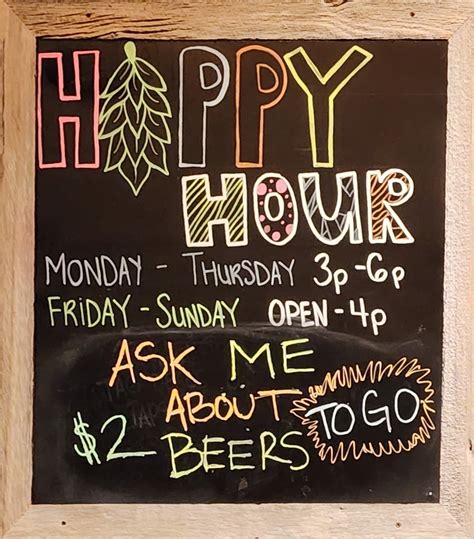 HAPPY
HOUR
MONDAY - THURSDAY 3p-6p
FRIDAY - SUNDAY OPEN - 4p
ASK ME
ABOUT
$2 BEERS
TO GO